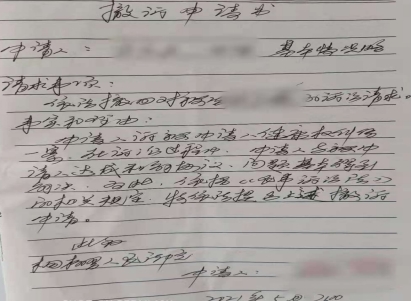 撤诉申请书
申请人： 基本情况略
请求事项：
依法撤回对 诉讼请求。
事实和理由：
申请人诉被申请人健康权纠纷
一案，在诉讼过程中，申请人与被申
请人达成和解协议，问题基本得到
解决，为此，依据《民事诉讼法》
的相关规定，特依法提出上述撤诉
申请。
此致
人民法院
申请人：
2021年5月 日